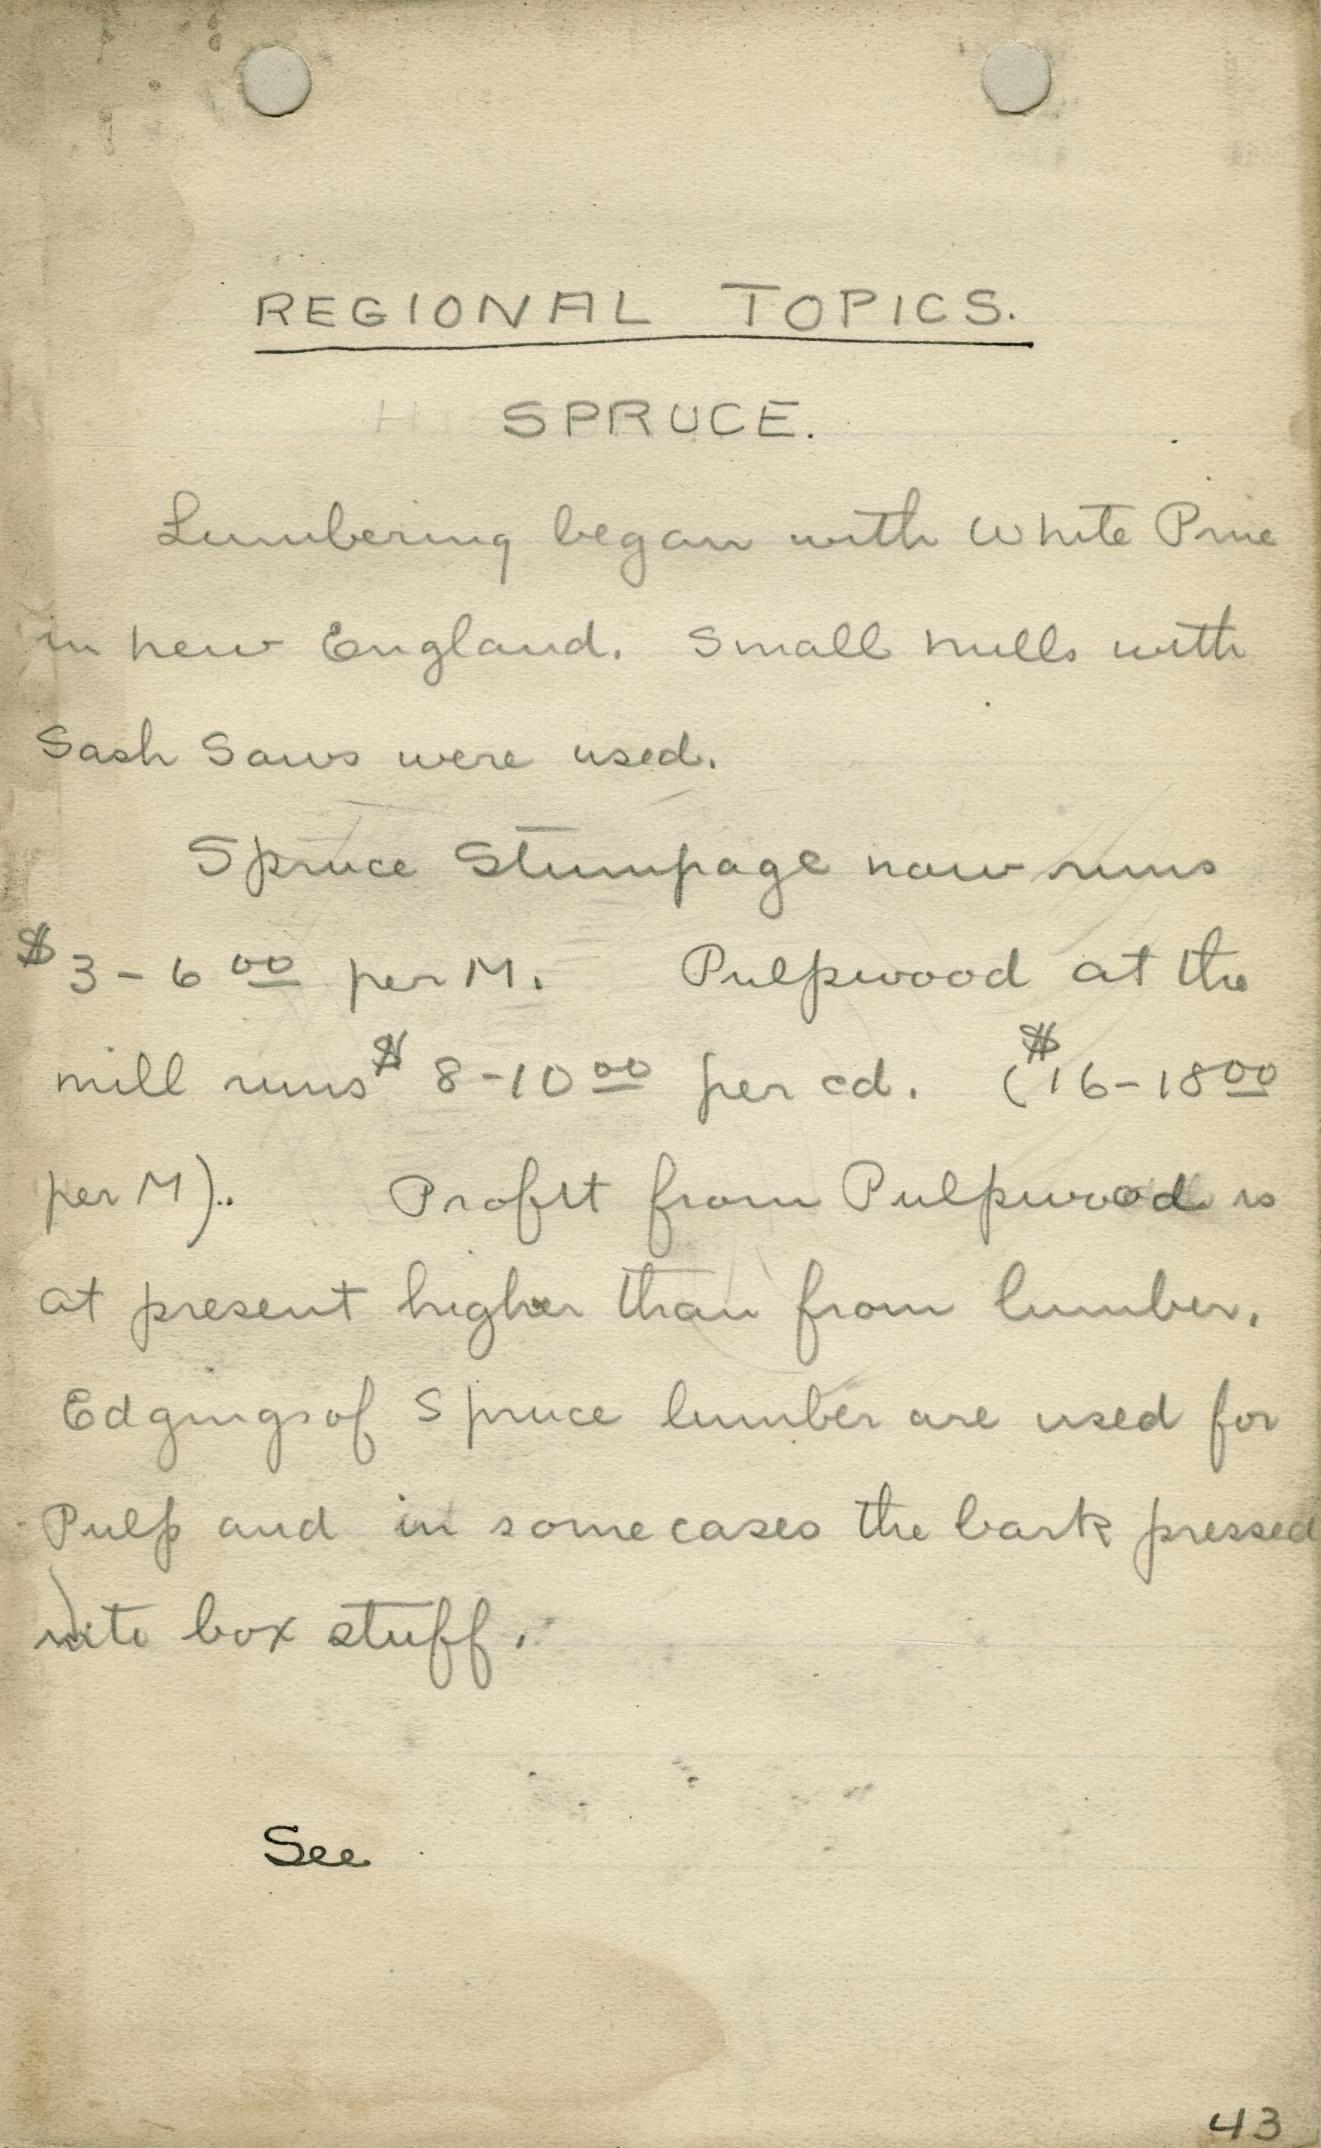 REGIONAL TOPICS.
SPRUCE.
Lumbering began with White Pine
in new England. Small mills with
Sash Saws were used.
Spruce Stumpage now runs
$3-6 00 per M. Pulpwood at the
mill runs $8-10 00 per cd. ($16-18 00
per M).. Profit from Pulpwood is
at present higher than from lumber.
Edgings of Spruce lumber are used for
Pulp and in some cases the bark pressed
into box stuff.
See
43